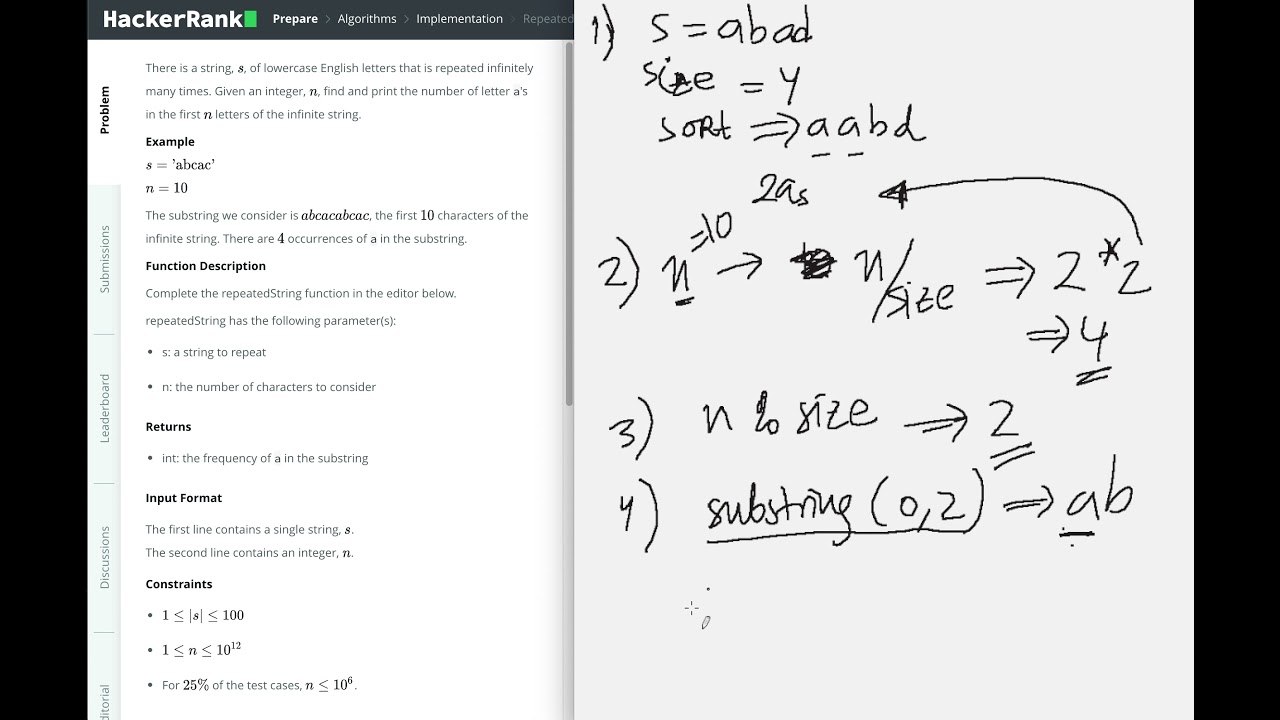 HackerRank
Prepare > Algorithms > Implementation > Repeated
Problem
Submissions
Leaderboard
Discussions
itorial
There is a string, s, of lowercase English letters that is repeated infinitely
many times. Given an integer, n, find and print the number of letter a's
in the first n letters of the infinite string.
Example
s = 'abcac'
n = 10
The substring we consider is abcacabcac, the first 10 characters of the
infinite string. There are 4 occurrences of a in the substring.
Function Description
Complete the repeatedString function in the editor below.
repeatedString has the following parameter(s):
• s: a string to repeat
• n: the number of characters to consider
Returns
• int: the frequency of a in the substring
Input Format
The first line contains a single string, s.
The second line contains an integer, n.
Constraints
• 1 ≤ |s| ≤ 100
• 1 ≤ n ≤ 10^12
• For 25% of the test cases, n ≤ 10^6.
1) s = abad
size = 4
sort ⇒ aabd
2as
2) n =10 → n/size ⇒ 2*2
⇒ 4
3) n % size ⇒ 2
4) substring (0,2) ⇒ ab